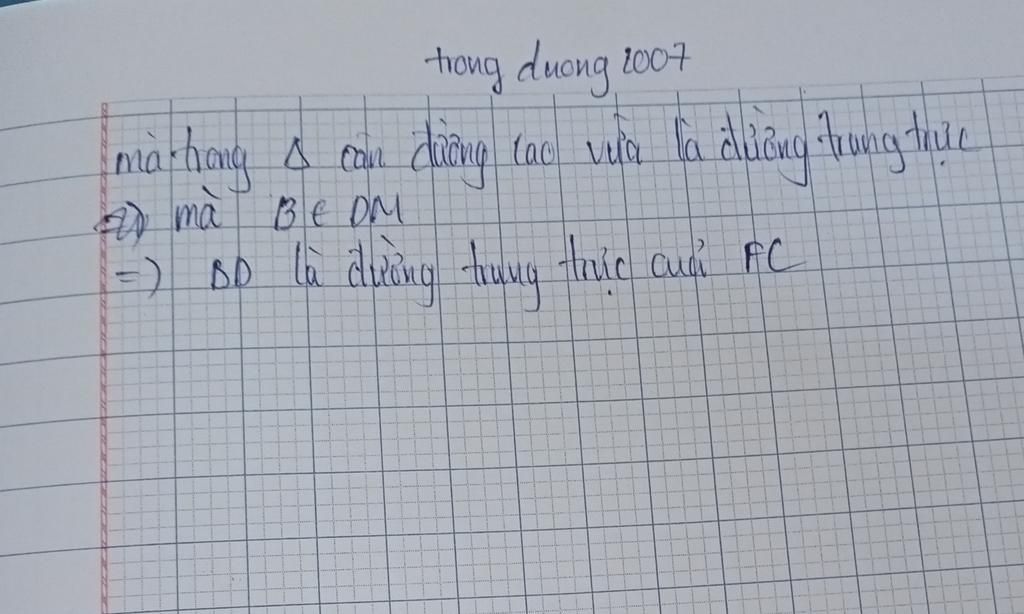 trong duong 2007
mà trong Δ cân đường cao vừa là đường trung trực
mà B ∈ DM
=) BD là đường trung trực cuả FC